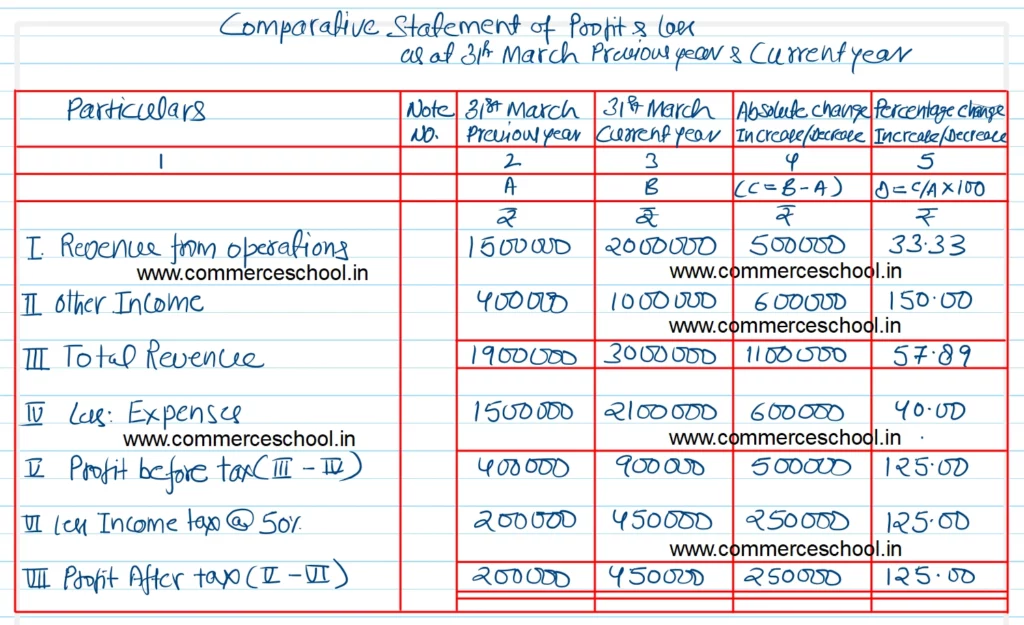 Comparative Statement of Profit & Loss
as at 31st March Previous year & Current year
Particulars Note No. 31st March Previous year 31st March Current year Absolute change Increase/Decrease Percentage change Increase/Decrease
1 2 3 4 5
A B (C=B-A) D=C/A×100
₹ ₹ ₹ ₹
I. Revenue from operations 1500000 2000000 500000 33.33
www.commerceschool.in www.commerceschool.in
II Other Income 400000 1000000 600000 150.00
www.commerceschool.in
III Total Revenue 1900000 3000000 1100000 57.89
IV Less: Expenses 1500000 2100000 600000 40.00
www.commerceschool.in www.commerceschool.in
V Profit before tax (III - IV) 400000 900000 500000 125.00
VI Less Income tax @ 50% 200000 450000 250000 125.00
www.commerceschool.in
VII Profit After tax (V - VI) 200000 450000 250000 125.00